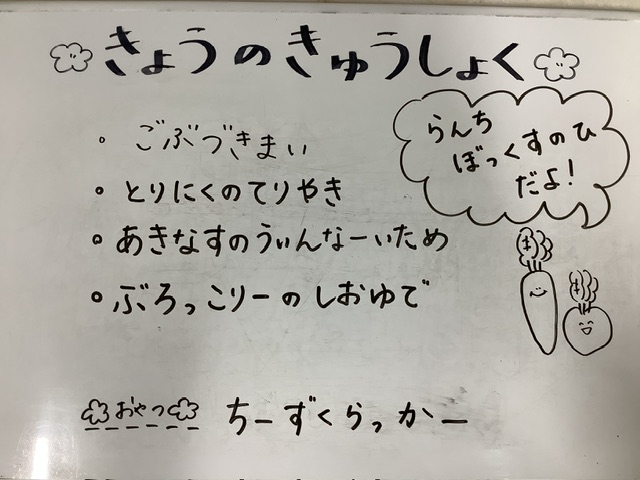 きょうのきゅうしょく
・ごぶづきまい
・とりにくのてりやき
・あきなすのうぃんなーいため
・ぶろっこりーのしおゆで
らんち
ぼっくすのひ
だよ!
おやつ
ちーずくらっかー